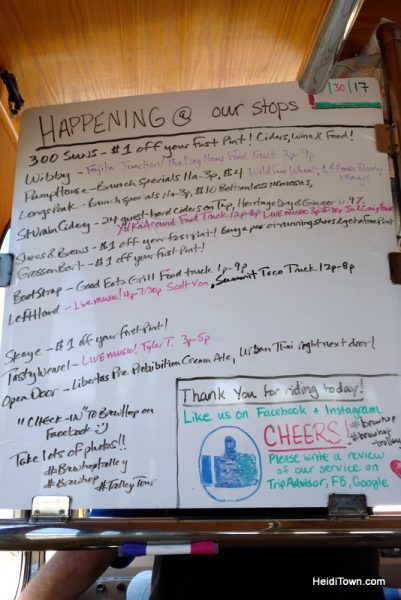 HAPPENING @ our stops
30/17
300 Suns - $1 off your First Pint! Ciders, Wine & Food!
Wibby - Fajita Junction/The Dog Haus Food Truck 2p-9p
PumpHouse - Brunch Specials 11a-3p, $4 Wild Fire Wheat, $4 Bloody
Longs Peak - Brunch Specials 11a-3p, $10 Bottomless Mimosas,
St Vrain Cidery - 24 guest + hard ciders on Tap, Heritage Dry & Ginger 6.9%
Ya Ka Around Food Truck 12p-8p Live music 3p-5:30p,
Shoes & Brews - $1 off your first pint! Buy a pair of running shoes & get a Free Pint
Grossen Bart - $1 off your First Pint!
BootStrap - Good Eats Grill Food truck 1p-9p
LeftHand - Live music! 4p-7:30p Scott Von, Summit Taco Truck 12p-8p
Skeye - $1 off your First Pint!
Tasty Weasel - LIVE MUSIC! Tyler T. 3p-5p
Open Door - Libertas Pre Prohibition Cream Ale, Urban Thai right next door!
"CHECK-IN" To BrewHop on
Facebook
Take lots of photos!!
#Brewhoptrolley
#Brewhop #TrolleyTour
Thank You for riding today!
Like us on Facebook + Instagram
CHEERS!
#brewhop
#brewhop
trolley
Please write a review
of our service on
TripAdvisor, FB, Google
HeidiTown.com